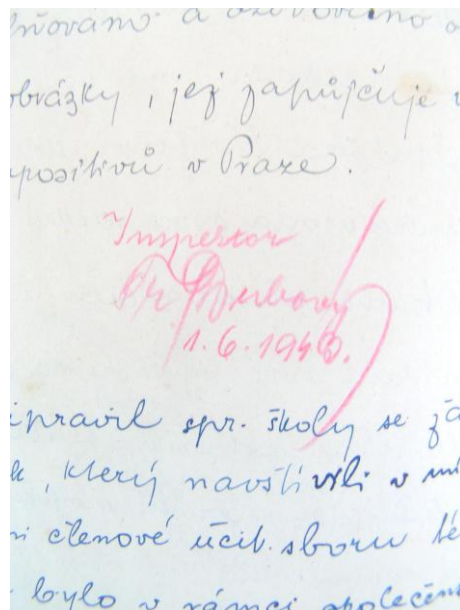 obrázky, jež zapůjčuje
v Praze.
Inspektor
Fr.
1.6.1943.
ipravil spr. školy se zá
k, který navštívili v mí
ni členové učit. sboru
bylo v rámci společen